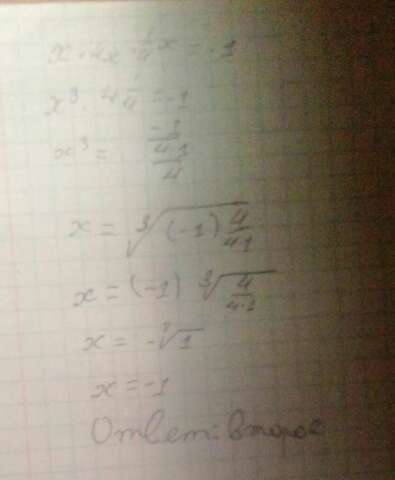 x · 4x · 1/4 x = -1
x³ · 4 1/4 = -1
x³ = -1/(4·1/4)
x = ∛((-1) 4/(4·1))
x = (-1) ∛(4/(4·1))
x = -∛1
x = -1
Ответ: второе